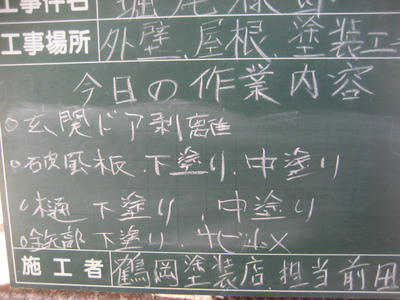 工事件名 堀尾様邸
工事場所 外壁.屋根.塗装工
今日の作業内容
○玄関ドア剥離
○破風板.下塗り.中塗り
○樋 下塗り.中塗り
○鉄部 下塗り.サビ止メ
施工者 鶴岡塗装店 担当前田